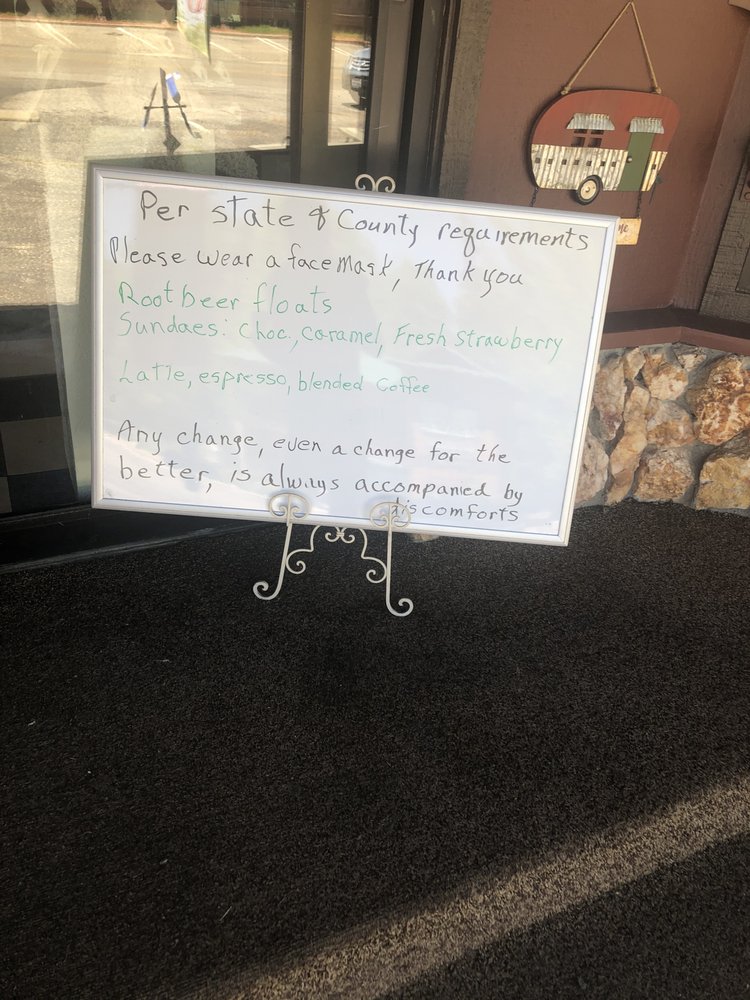 Per state & County requirements
Please wear a face mask, Thank you
Root beer floats
Sundaes: Choc., caramel, Fresh strawberry
Latte, espresso, blended Coffee
Any change, even a change for the
better, is always accompanied by
discomforts